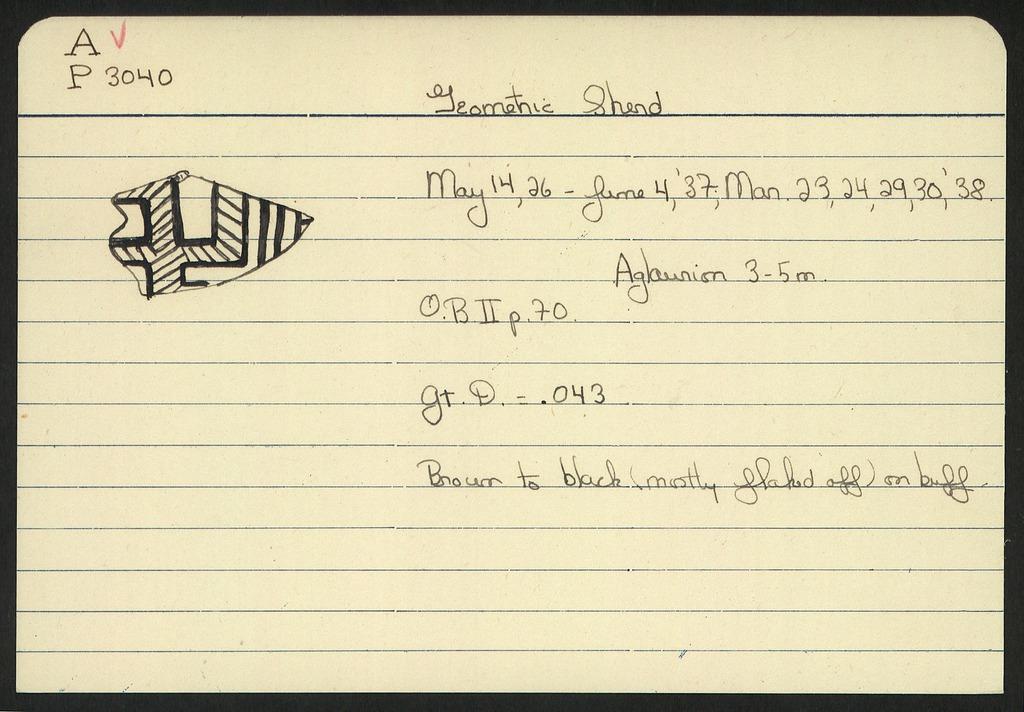 A ✓
P 3040
Geometric Sherd
May 14, 26 - June 4, '37; Mar. 23, 24, 29, 30, '38.
Aglaurion 3-5m.
O.B II p. 70.
gt. D. = .043
Brown to black (mostly flaked off) on buff